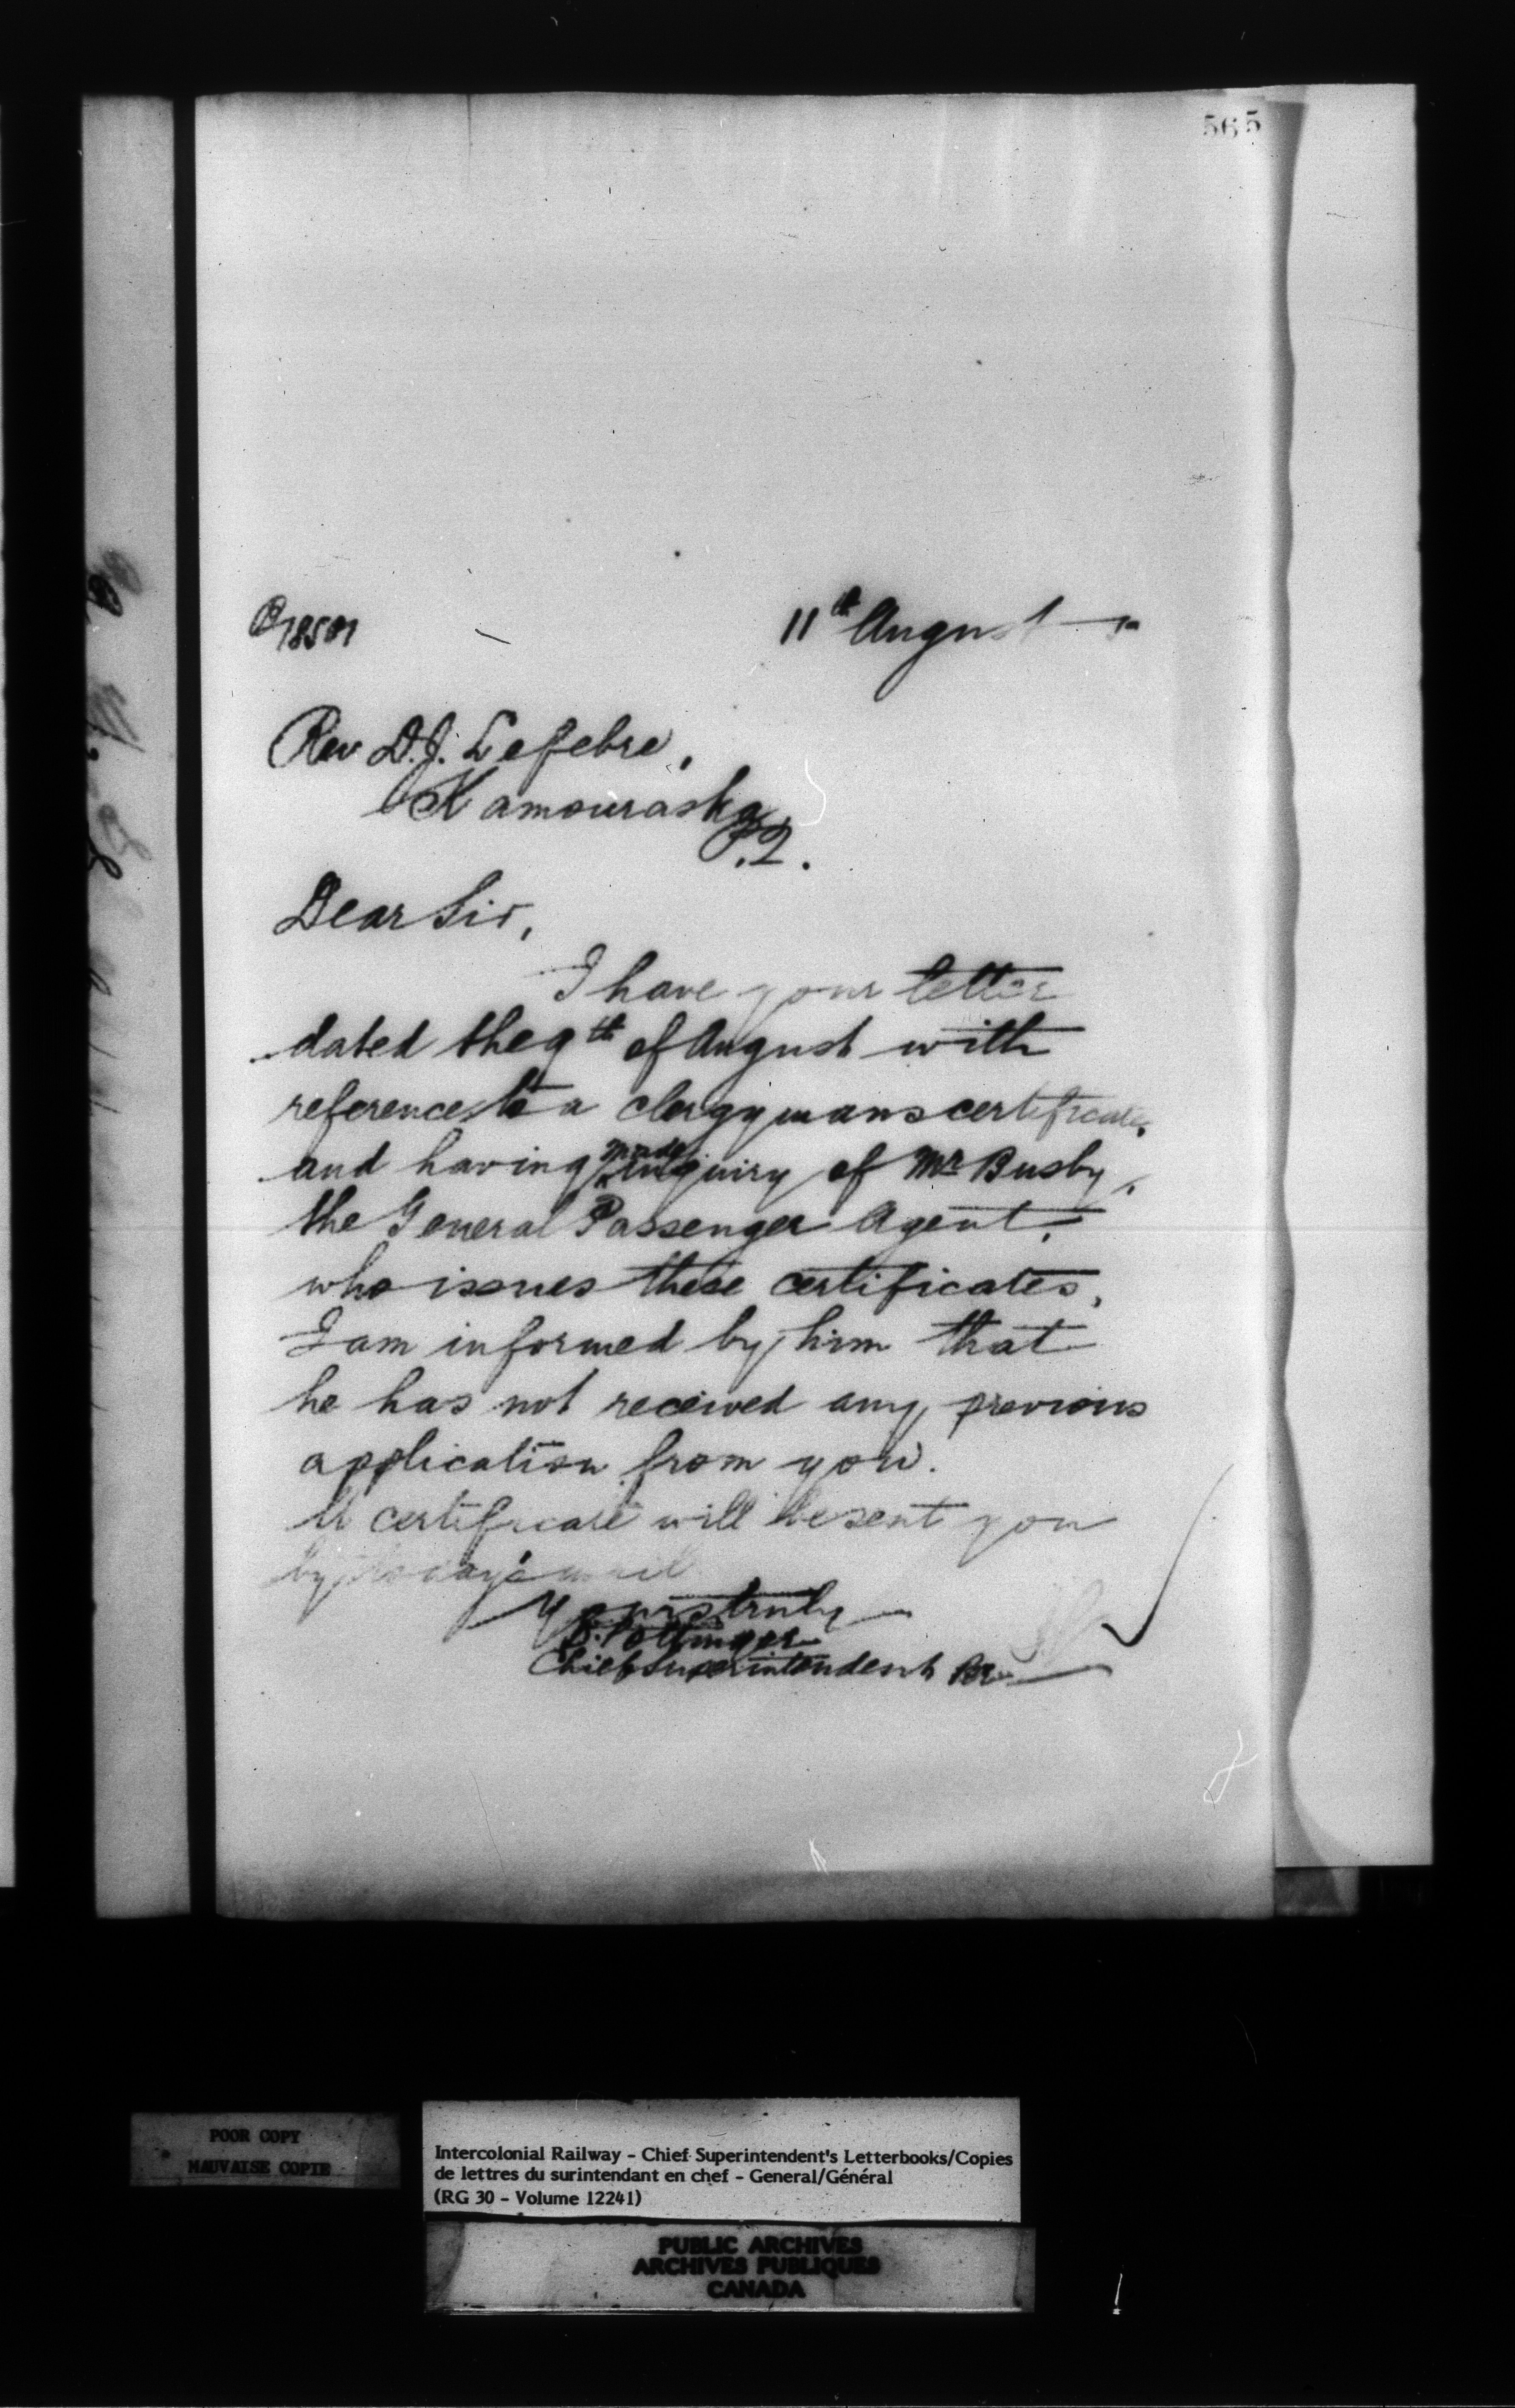 565
11th August
Rev D.J. Lefebre,
Kamouraska,
P.Q.
Dear Sir,
I have your letter
dated the 9th of August with
reference to a clergymans certificate,
and having made inquiry of Mr Busby,
the General Passenger Agent,
who issues these certificates,
I am informed by him that
he has not received any previous
application from you.
A certificate will be sent you
by today's mail
Yours truly
D. Pottinger
Chief Superintendent
POOR COPY
MAUVAISE COPIE
Intercolonial Railway - Chief Superintendent's Letterbooks/Copies
de lettres du surintendant en chef - General/Général
(RG 30 - Volume 12241)
PUBLIC ARCHIVES
ARCHIVES PUBLIQUES
CANADA